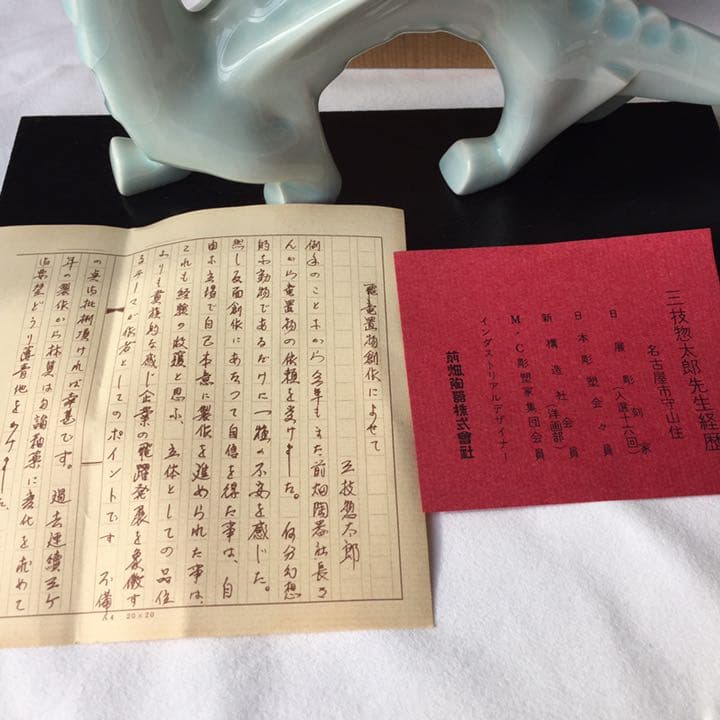 飛竜置物創作によせて
三枝惣太郎
例年のことながら今年もまた前畑陶器社長さ
んから竜置物の依頼を受けました。何分幻想
的な動物であるだけに一種の不安を感じた。
然し反面創作にあたって自信を得た事は、自
由な立場で自己本意に製作を進められた事は、
これも経験の収穫と思ふ、立体としての品位
よりも貴族的な感じ企業の飛躍発展を象徴す
るテーマが作者としてのポイントです 不備
の点御批棚頂ければ幸甚です。過去連続五ケ
年の製作から は勿論抽薬に変化を求めて
御要望どうり薄青地をかけました。
20×20
三枝惣太郎先生経歴
名古屋市守山住
日展彫刻家(入選十六回)
日本彫塑会々員
新構造社会員(洋画部)
M・C彫塑家集団会員
インダストリアルデザイナー
前畑陶器株式會社